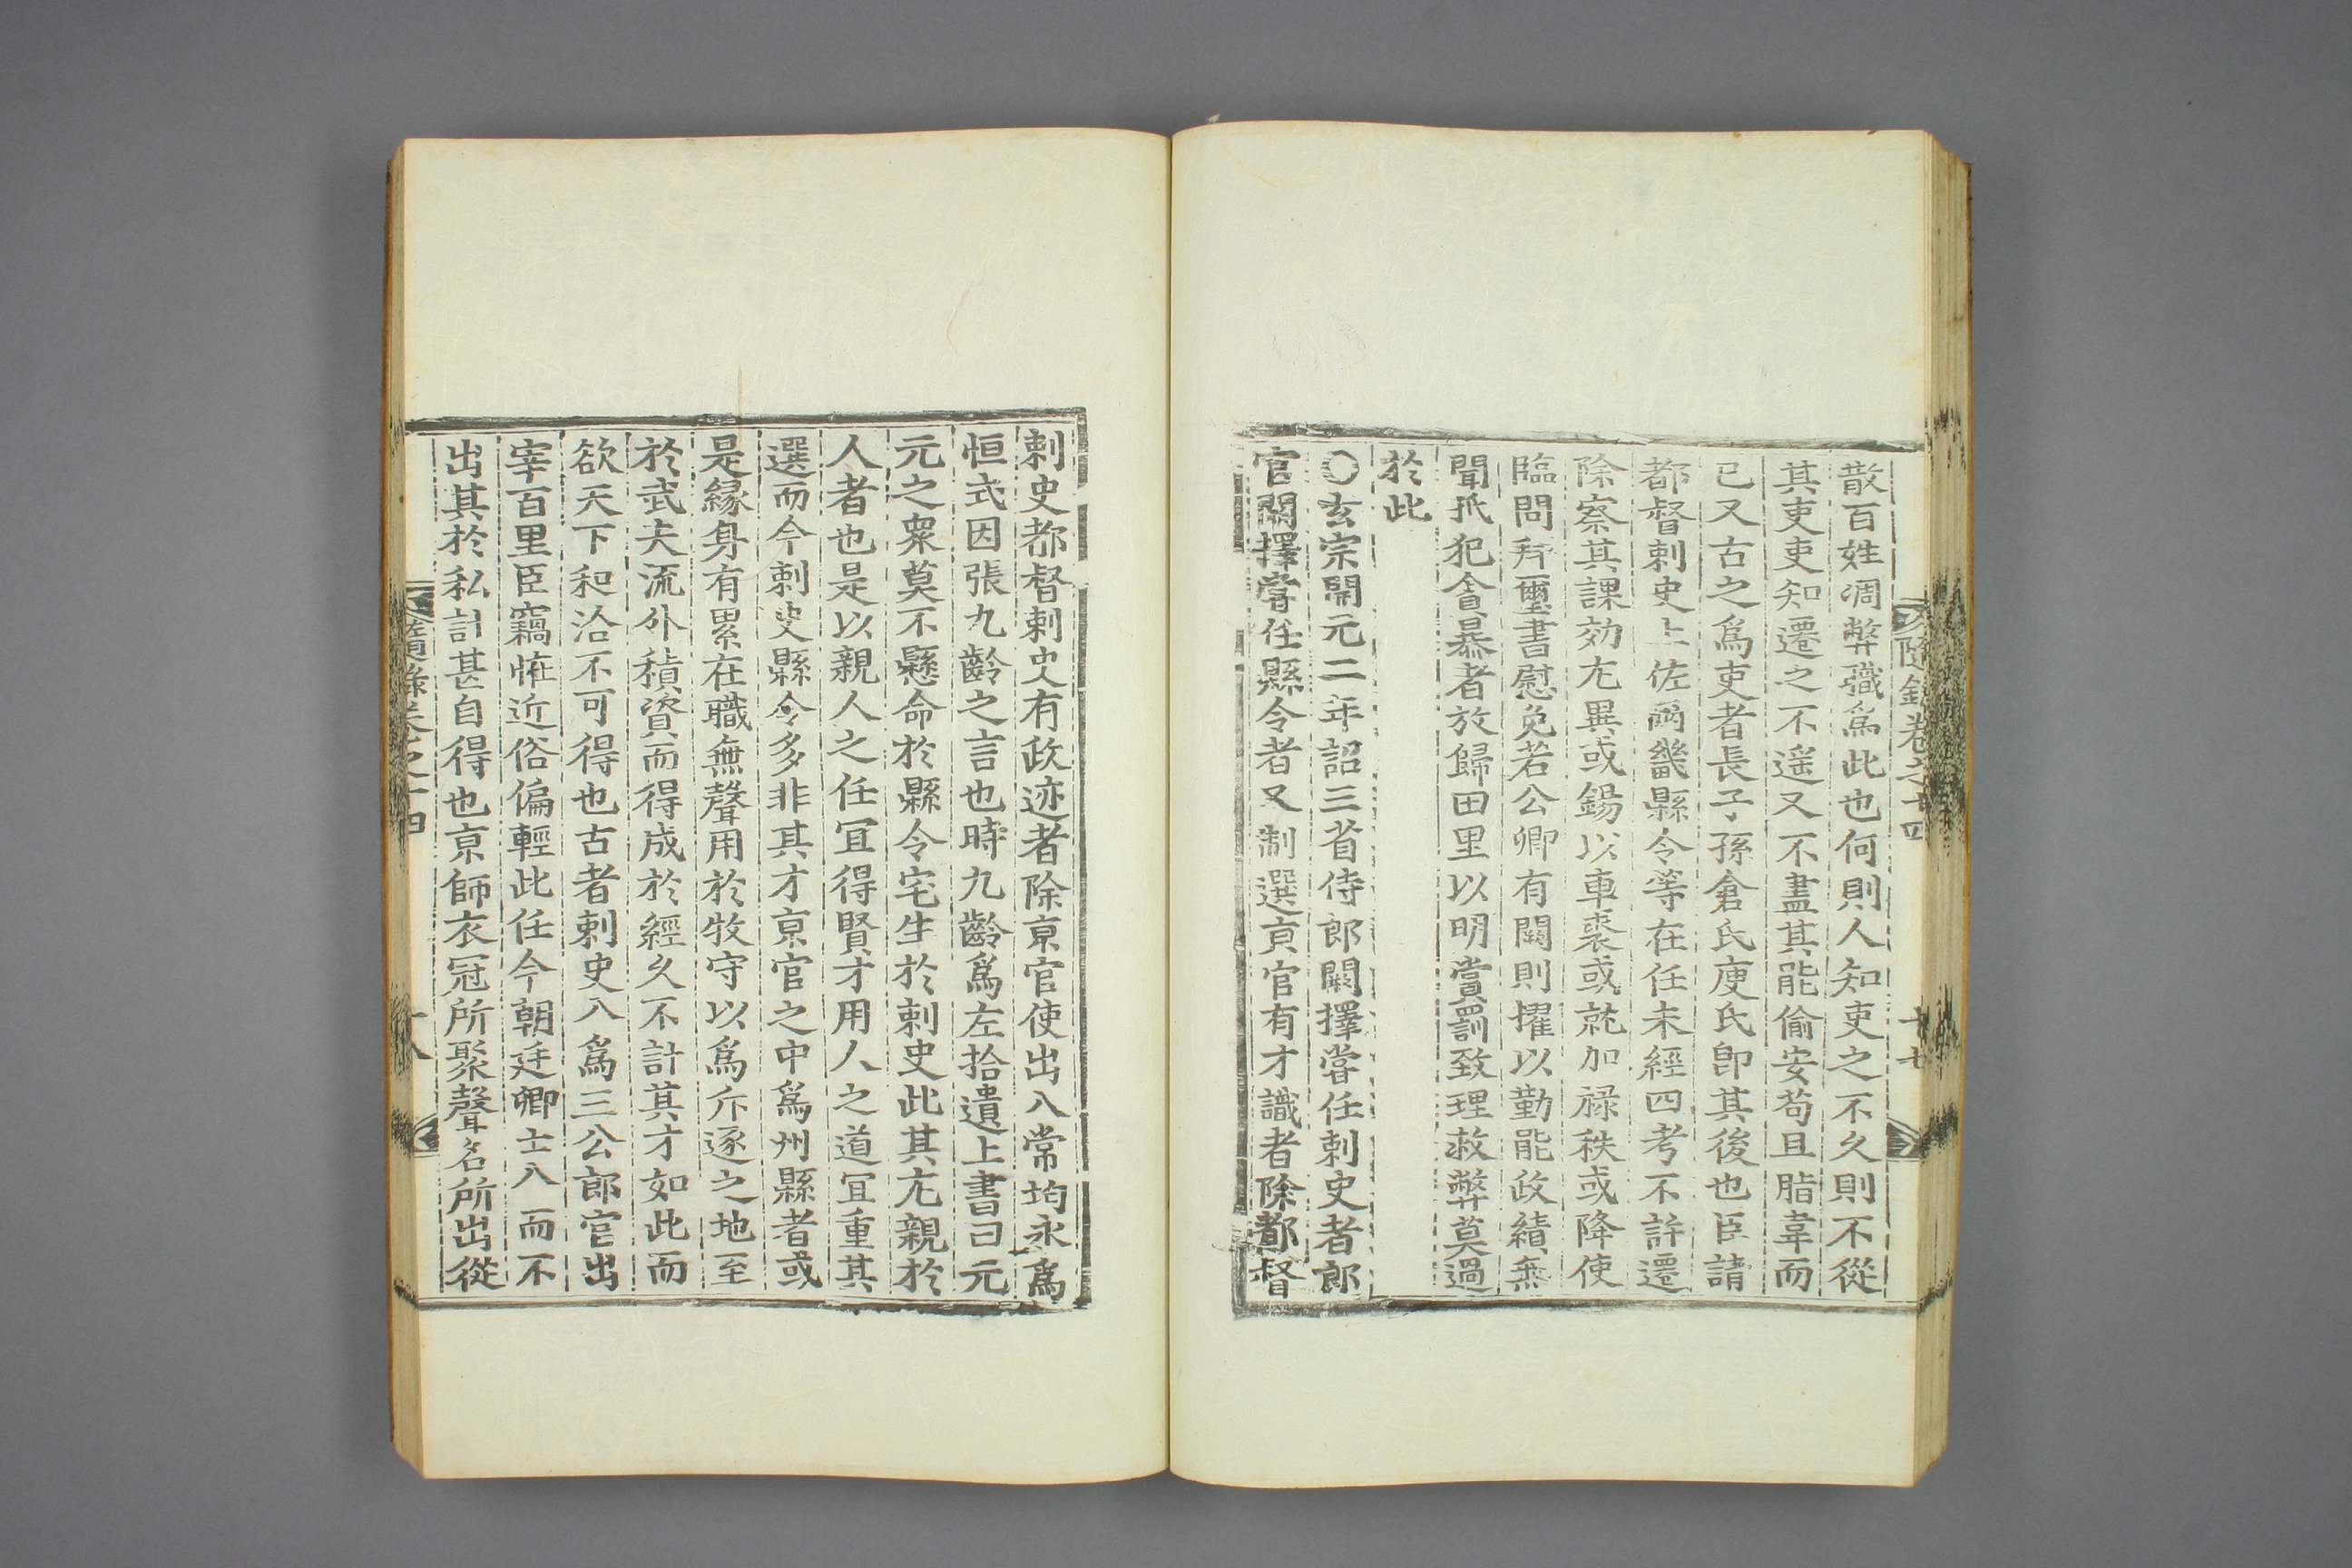 散百姓凋弊職爲此也何則人知吏之不久則不從
其吏吏知遷之不遥又不盡其能偷安苟且脂韋而
已又古之爲吏者長子孫倉氏庾氏卽其後也臣請
都督刺史上佐兩畿縣令等在任未經四考不許遷
除察其課効尤異或錫以車裘或就加禄秩或降使
臨問并璽書慰免若公卿有闕則擢以勤能政績無
聞抵犯貪暴者放歸田里以明賞罰致理救弊莫過
於此
○玄宗開元二年詔三省侍郎闕擇嘗任刺史者郎
官闕擇嘗任縣令者又制選京官有才識者除都督
隨錄卷之十四
十七
刺史都督刺史有政迹者除京官使出入常均永爲
恒式因張九齡之言也時九齡爲左拾遺上書曰元
元之衆莫不懸命於縣令宅生於刺史此其尤親於
人者也是以親人之任宜得賢才用人之道宜重其
選而今刺史縣令多非其才京官之中爲州縣者或
是緣身有累在職無聲用於牧守以爲斥逐之地至
於武夫流外積資而得成於經久不計其才如此而
欲天下和洽不可得也古者刺史入爲三公郎官出
宰百里臣竊恠近俗偏輕此任今朝廷卿士入而不
出其於私計甚自得也京師衣冠所聚聲名所出從
隨錄卷之十四
十八